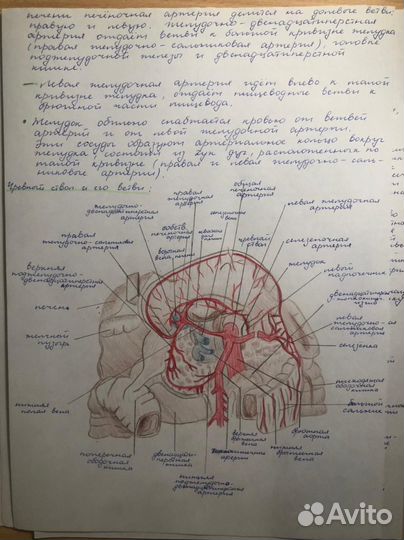 печени печеночная артерия делится на долевые ветви:
правую и левую. Желудочно-двенадцатиперстная
артерия отдаёт ветви к большой кривизне желудка
(правая желудочно-сальниковая артерия), головке
поджелудочной железы и двенадцатиперстной
кишке.
— Левая желудочная артерия идёт влево к малой
кривизне желудка, отдаёт пищеводные ветви к
брюшной части пищевода.
• Желудок обильно снабжается кровью от ветвей
артерий и от левой желудочной артерии.
Эти сосуды образуют артериальное кольцо вокруг
желудка, состоящее из дуг, расположенных по
малой кривизне (правая и левая желудочно-саль-
никовые артерии).
Чревный ствол и его ветви:
общая
печеночная
артерия
правая
желудочная
артерия
левая желудочная
артерия
желудочно-
двенадцатиперстная
артерия
собств.
печеночная
артерия
чревный
ствол
селезеночная
артерия
правая
желудочно-сальниковая
артерия
воротная
вена печени
желудок
верхняя
поджелудочно-
двенадцатиперстная
артерия
левой
надпочечник
печень
левая
желудочно-са
сальниковая
артерия
желчный
пузырь
селезенка
нисходящая
ободочная
кишка
нижняя
полая вена
большой
сальник
брюшная
аорта
верхняя
брыжеечная
вена
нижняя
брыжеечная
вена
артерии
поперечная
ободочная
кишка
двенадцати-
перстная
кишка
нижняя
поджелудочно-
двенадцатиперстная
артерия
Avito